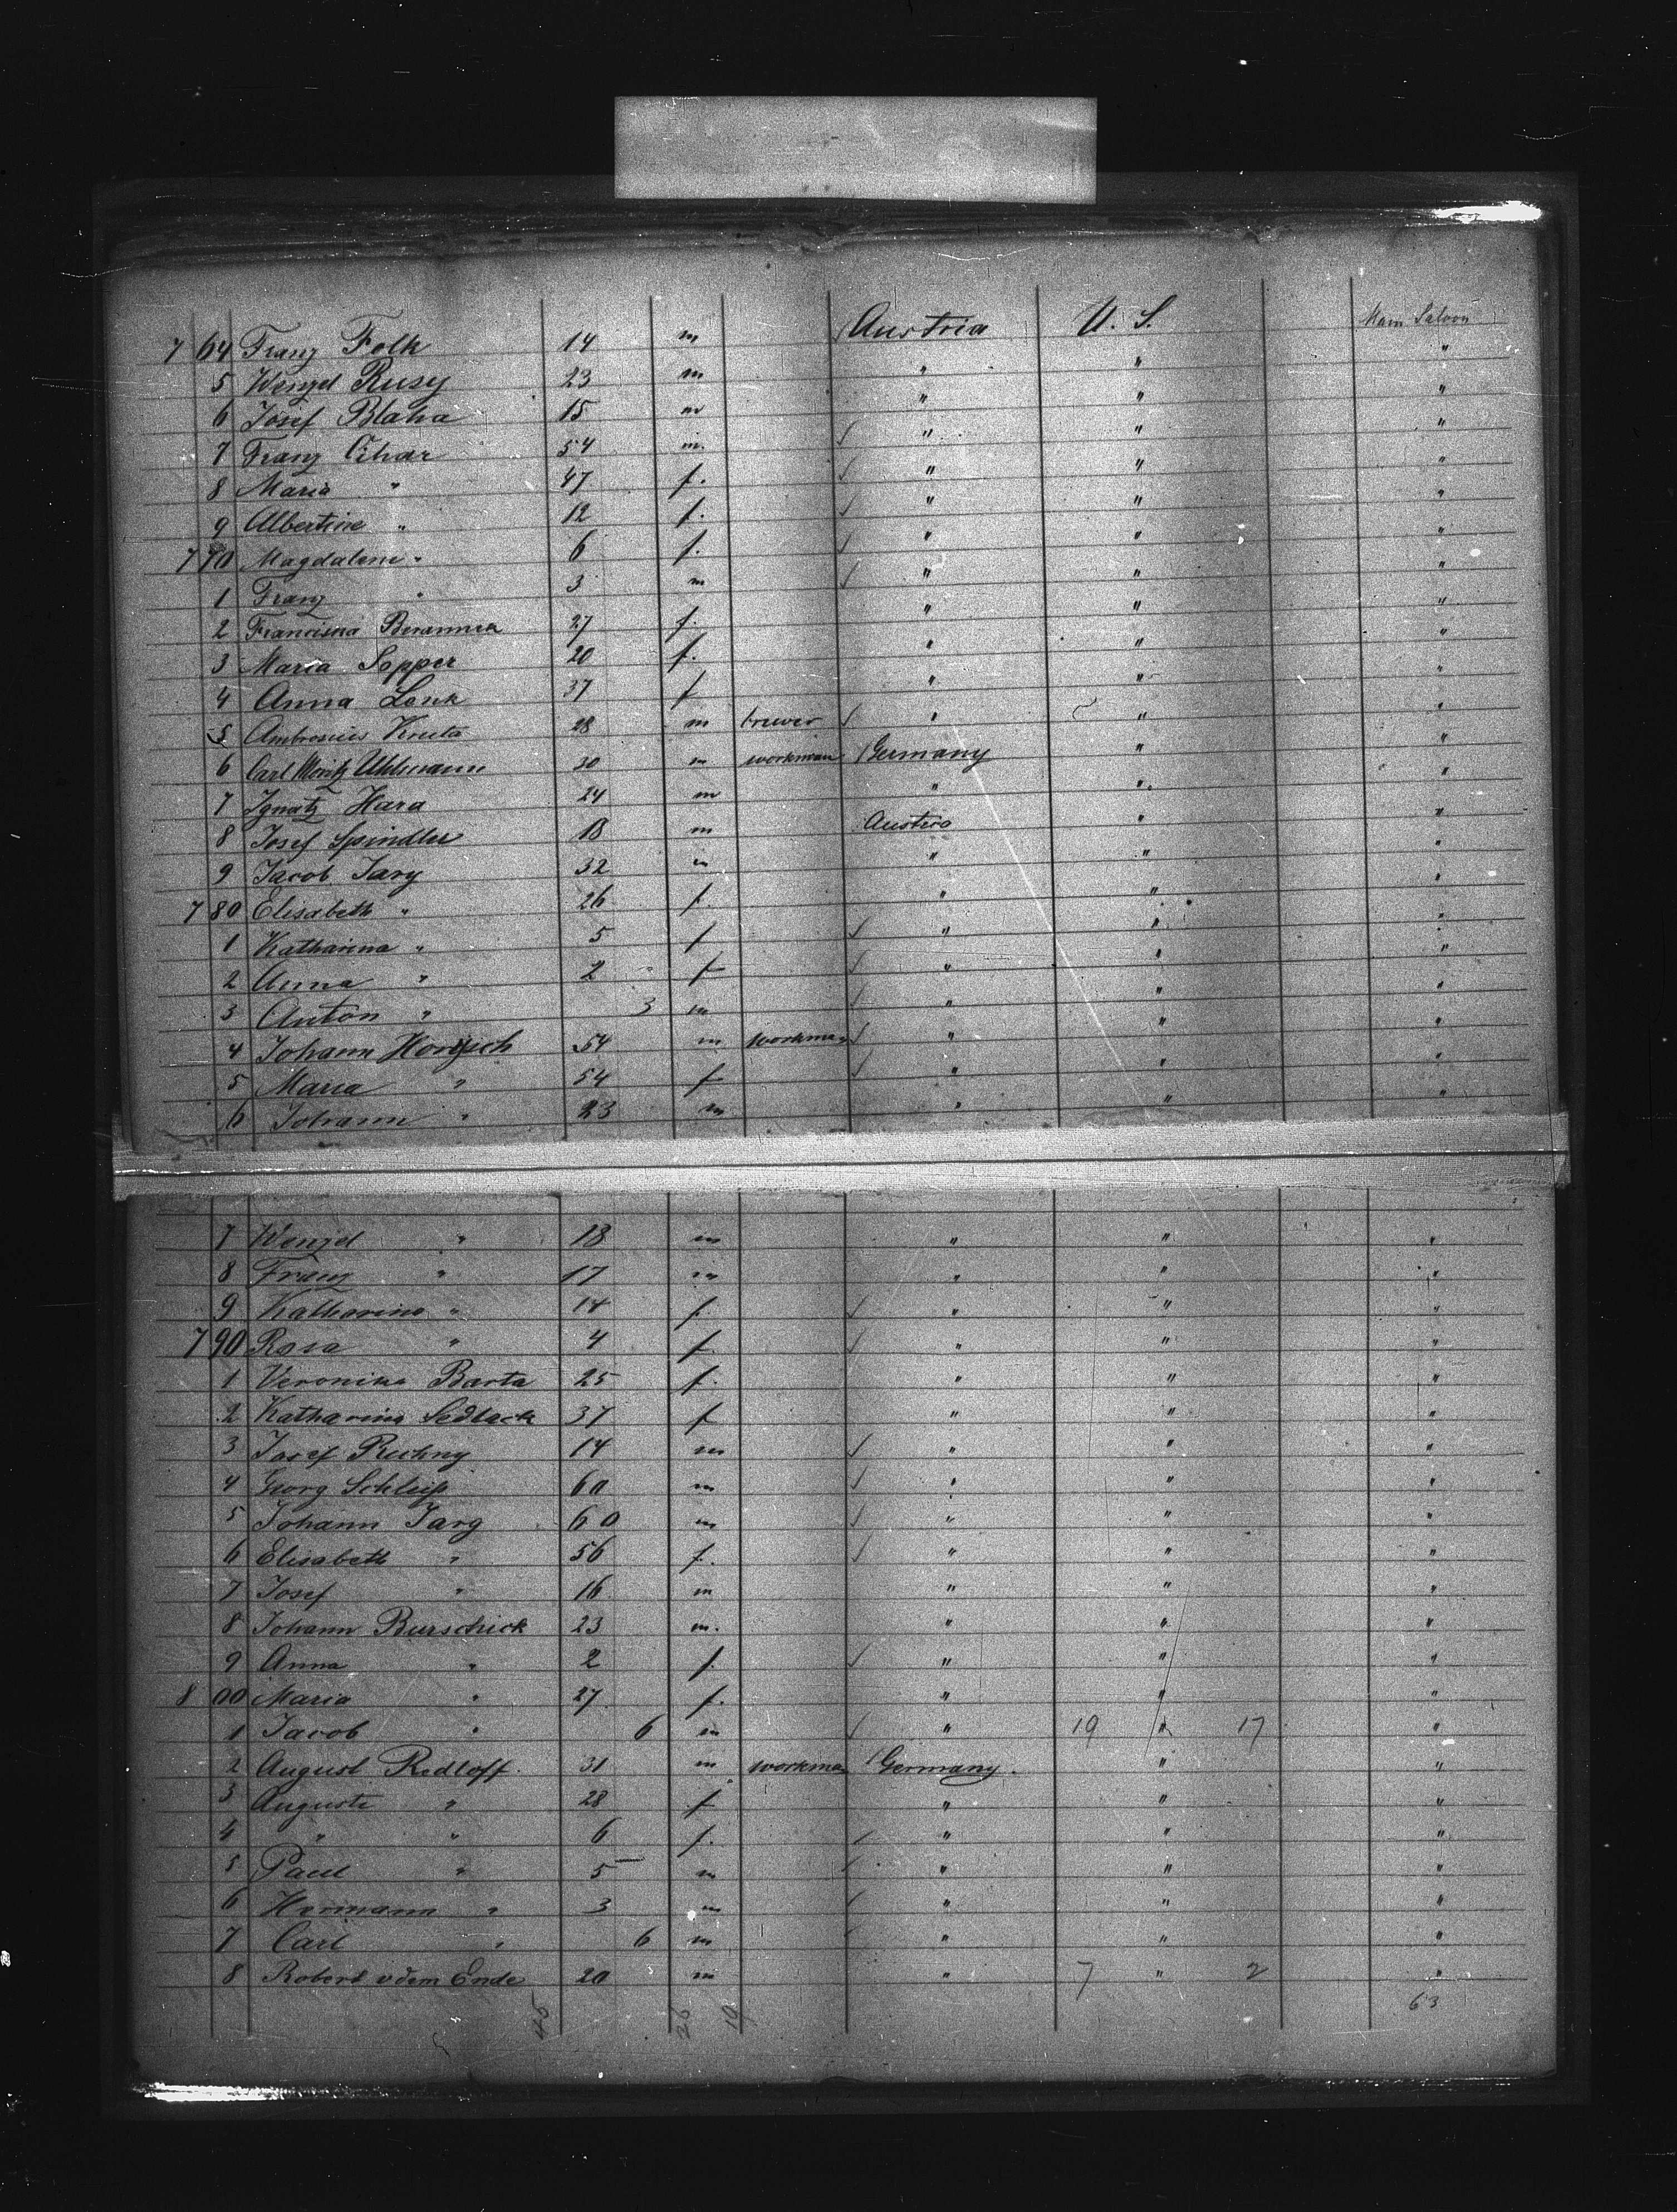 7 64 Franz Folk 14 m Austria U. S. Main Saloon
5 Wenzel Rusy 23 m " " "
6 Josef Blaha 15 m " " "
7 Franz Cihar 54 m. " " "
8 Maria " 47 f. " " "
9 Albertine " 12 f. " " "
7 70 Magdalene " 6 f. " " "
1 Franz " 3 m " " "
2 Francisca 27 f. " " "
3 Maria Sopper 20 f. " " "
4 Anna Lenk 37 f " " "
5 Ambrosius Kruta 28 m brewer " " "
6 Carl Moritz Uhlmann 30 m workman Germany " "
7 Ignatz Hara 24 m " " "
8 Josef Spindler 18 m Austria " "
9 Jacob Jarg 32 m " " "
7 80 Elisabeth " 26 f. " " "
1 Katharina " 5 f " " "
2 Anna " 2 f " " "
3 Anton " 3 m " " "
4 Johann 54 m workman " " "
5 Maria " 54 f " " "
6 Johann " 23 m " " "
7 Wenzel " 18 m " " "
8 Franz " 17 m " " "
9 Katharina " 14 f. " " "
7 90 Rosa " 4 f. " " "
1 Veronika Barta 25 f. " " "
2 Katharina Sedlack 37 f " " "
3 Josef Ruhny 14 m " " "
4 Georg Schleiß 60 m " " "
5 Johann Jarg 60 m " " "
6 Elisabeth " 56 f. " " "
7 Josef " 16 m " " "
8 Johann Burschick 23 m. " " "
9 Anna " 2 f. " " "
8 00 Maria " 27 f. " " "
1 Jacob " 6 m " 19 " 17 "
2 August Redloff. 31 m workman Germany. " "
3 Auguste " 28 f " " "
4 " " 6 f. " " "
5 Paul " 5 m " " "
6 Hermann " 3 m " " "
7 Carl " 6 m " " "
8 Robert v dem Ende 20 m " 7 " 2 "
45 26 19 63